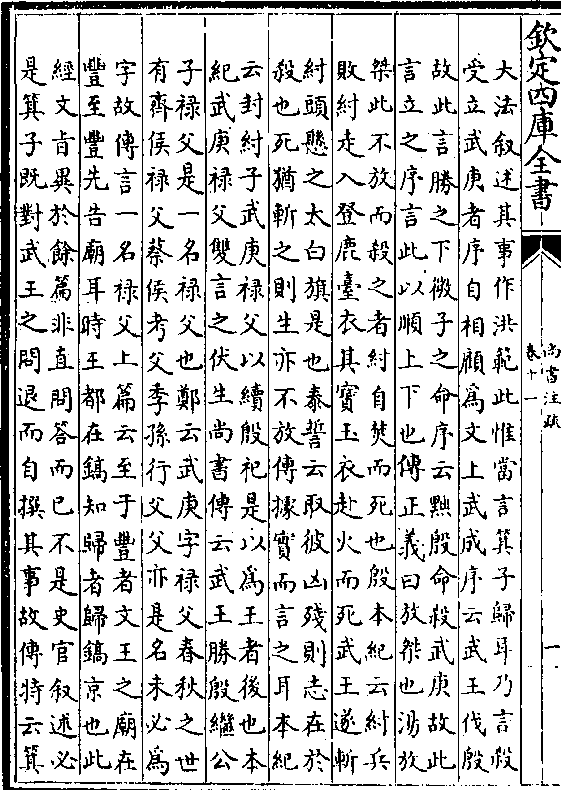 欽定四庫全書
尚書注疏
卷十一
一
大法叙述其事作洪範此惟當言箕子歸耳乃言殺
受立武庚者序自相顧為文上武成序云武王伐殷
故此言勝之下微子之命序云黜殷命殺武庚故此
言立之序言此以順上下也傳正義曰放桀也湯放
桀此不放而殺之者紂自焚而死也殷本紀云紂兵
敗紂走入登鹿臺衣其寶玉衣赴火而死武王遂斬
紂頭懸之太白旗是也泰誓云取彼凶殘則志在於
殺也死猶斬之則生亦不放傳據實而言之耳本紀
云封紂子武庚祿父以續殷祀是以為王者後也本
紀武庚祿父雙言之伏生尚書傳云武王勝殷繼公
子祿父是一名祿父也鄭云武庚字祿父春秋之世
有齊侯祿父蔡侯考父季孫行父父亦是名未必為
字故傳言一名祿父上篇云至于豐者文王之廟在
豐至豐先告廟耳時王都在鎬知歸者歸鎬京也此
經文旨異於餘篇非直問答而已不是史官叙述必
是箕子既對武王之問退而自撰其事故傳特云箕